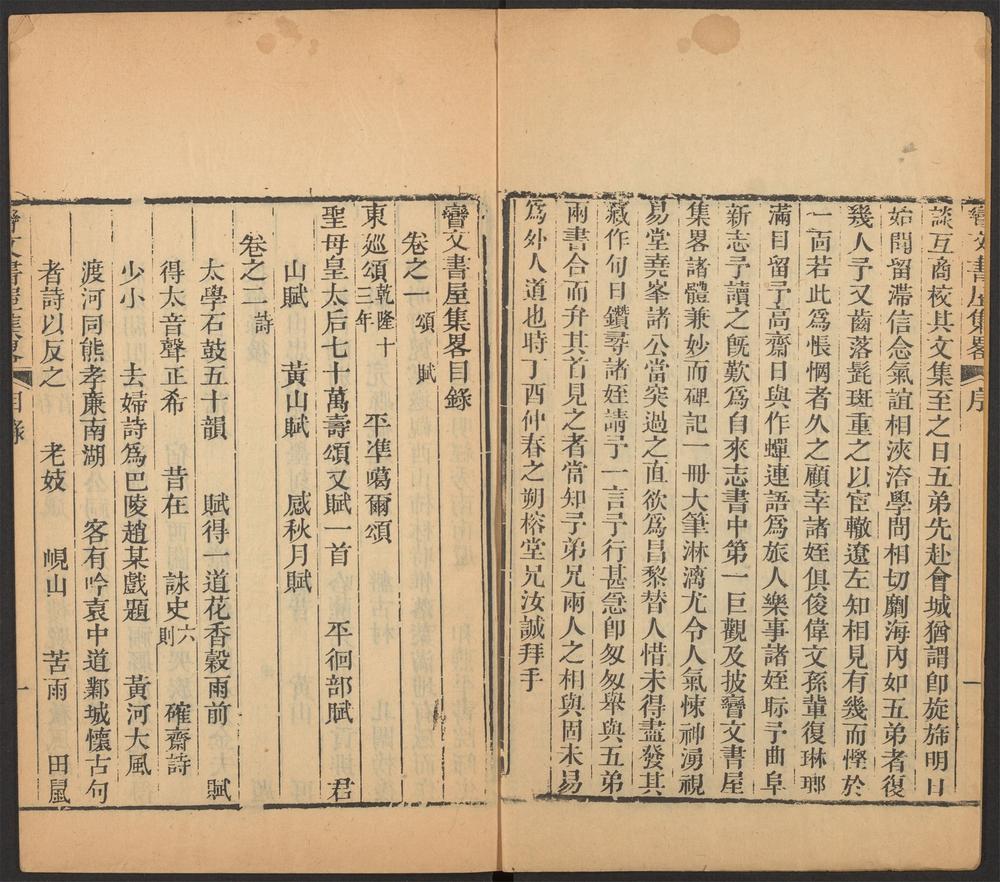 談互商校其文集至之日五弟先赴會城猶謂卽旋旆明日
始聞留滯信念氣誼相浹洽學問相切劘海內如五弟者復
幾人予又齒落髭斑重之以宦轍遼左知相見有幾而慳於
一面若此爲悵惘者久之顧幸諸姪俱俊偉文孫輩復琳瑯
滿目留予高齋日與作蟬連語爲旅人樂事諸姪眎予曲阜
新志予讀之旣歎爲自來志書中第一巨觀及披㝈文書屋
集畧諸體兼妙而碑記一冊大筆淋漓尤令人氣悚神湧視
易堂堯峯諸公當突過之直欲爲昌黎替人惜未得盡發其
藏作旬日鑽尋諸姪請予一言予行甚急卽匆匆舉與五弟
兩書合而弁其首見之者當知予弟兄兩人之相與固未易
爲外人道也時丁酉仲春之朔榕堂兄汝誠拜手
㝈文書屋集畧 序 一
㝈文書屋集畧目錄
卷之一 頌 賦
東巡頌 乾隆十三年 平準噶爾頌
聖母皇太后七十萬壽頌又賦一首 平徊部賦 君
山賦 黃山賦 感秋月賦
卷之二 詩
太學石鼓五十韻 賦得一道花香穀雨前 賦
得太音聲正希 昔在 詠史 六則 確齋詩
少小 去婦詩爲巴陵趙某戲題 黃河大風
渡河同熊孝廉南湖 客有吟哀中道鄴城懷古句
者詩以反之 老妓 峴山 苦雨 田鼠
㝈文書屋集畧 目錄 一